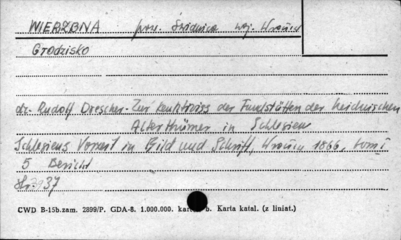 WIERZBNA pow. Świdnica woj. Wrocław
Grodzisko
dr. Rudolf Drescher - Zur Kenntniss der Fundstätten der heidnischen
Alterthümer in Schlesien
Schlesiens Vorzeit in Bild und Schrift, Wrocław 1866, tom I
5 Bericht
str. 37
CWD B-15b.zam. 2899/P. GDA-8. 1.000.000. kar. b. Karta katal. (z liniat.)